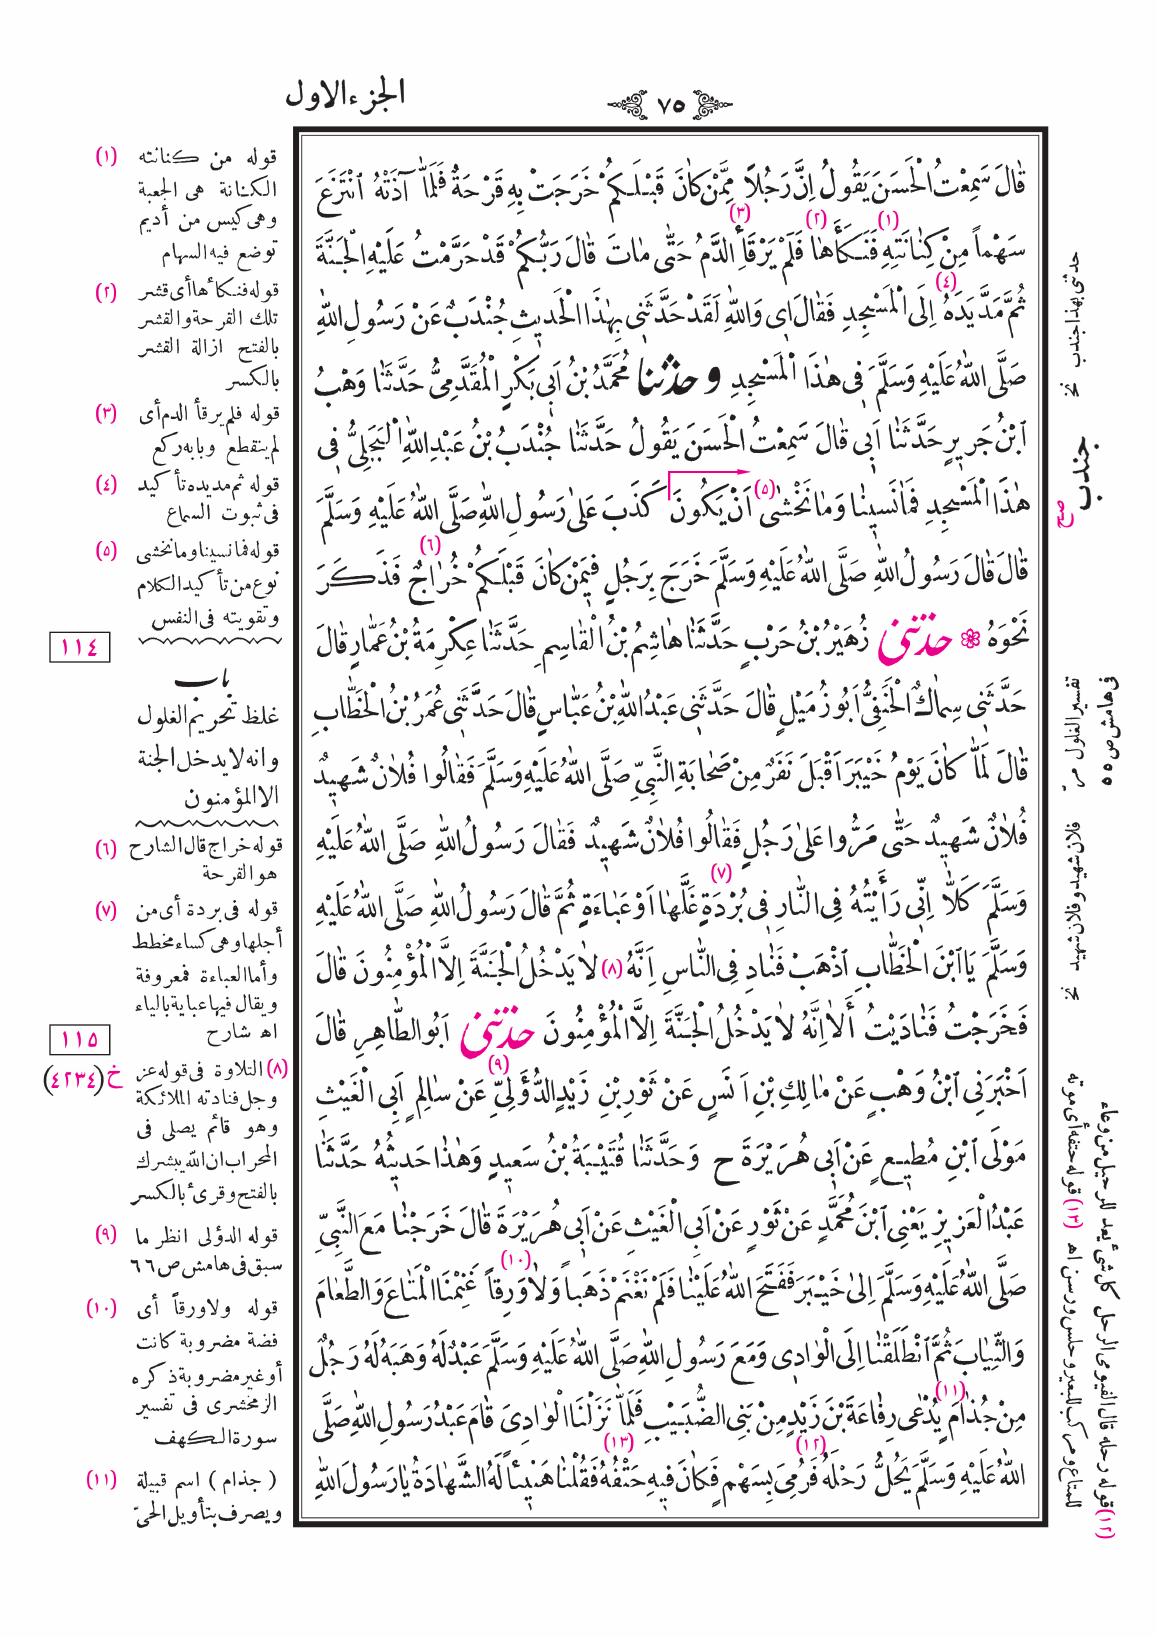 ٧٥
الجزء الاول
قَالَ سَمِعْتُ الْحَسَنَ يَقُولُ اِنَّ رَجُلاً مِمَّنْ كَانَ قَبْلَكُمْ خَرَجَتْ بِهِ قَرْحَةٌ فَلَمَّا آذَتْهُ انْتَزَعَ
سَهْماً مِنْ كِنَانَتِهِ (١) فَنَكَأَهَا (٢) فَلَمْ يَرْقَأِ (٣) الدَّمُ حَتّٰى مَاتَ قَالَ رَبُّكُمْ قَدْ حَرَّمْتُ عَلَيْهِ الْجَنَّةَ
ثُمَّ مَدَّ يَدَهُ (٤) اِلَى الْمَسْجِدِ فَقَالَ اى وَاللّٰهِ لَقَدْ حَدَّثَنِى بِهٰذَا الْحَدِيثِ جُنْدَبٌ عَنْ رَسُولِ اللّٰهِ
صَلَّى اللّٰهُ عَلَيْهِ وَسَلَّمَ فِى هٰذَا الْمَسْجِدِ وحدثنا مُحَمَّدُ بْنُ اَبِى بَكْرٍ الْمُقَدَّمِىُّ حَدَّثَنَا وَهْبُ
ابْنُ جَرِيرٍ حَدَّثَنَا اَبِى قَالَ سَمِعْتُ الْحَسَنَ يَقُولُ حَدَّثَنَا جُنْدَبُ بْنُ عَبْدِ اللّٰهِ الْبَجَلِىُّ فِى
هٰذَا الْمَسْجِدِ فَمَا نَسِينَا وَمَا نَخْشٰى (٥) اَنْ يَكُونَ كَذَبَ عَلٰى رَسُولِ اللّٰهِ صَلَّى اللّٰهُ عَلَيْهِ وَسَلَّمَ
قَالَ قَالَ رَسُولُ اللّٰهِ صَلَّى اللّٰهُ عَلَيْهِ وَسَلَّمَ خَرَجَ بِرَجُلٍ فِيمَنْ كَانَ قَبْلَكُمْ خُرَاجٌ (٦) فَذَكَرَ
نَحْوَهُ حدثنى زُهَيْرُ بْنُ حَرْبٍ حَدَّثَنَا هَاشِمُ بْنُ الْقَاسِمِ حَدَّثَنَا عِكْرِمَةُ بْنُ عَمَّارٍ قَالَ
حَدَّثَنِى سِمَاكٌ الْحَنَفِىُّ اَبُو زُمَيْلٍ قَالَ حَدَّثَنِى عَبْدُ اللّٰهِ بْنُ عَبَّاسٍ قَالَ حَدَّثَنِى عُمَرُ بْنُ الْخَطَّابِ
قَالَ لَمَّا كَانَ يَوْمُ خَيْبَرَ اَقْبَلَ نَفَرٌ مِنْ صَحَابَةِ النَّبِىِّ صَلَّى اللّٰهُ عَلَيْهِ وَسَلَّمَ فَقَالُوا فُلَانٌ شَهِيدٌ
فُلَانٌ شَهِيدٌ حَتّٰى مَرُّوا عَلٰى رَجُلٍ فَقَالُوا فُلَانٌ شَهِيدٌ فَقَالَ رَسُولُ اللّٰهِ صَلَّى اللّٰهُ عَلَيْهِ
وَسَلَّمَ كَلَّا اِنِّى رَأَيْتُهُ فِى النَّارِ فِى بُرْدَةٍ (٧) غَلَّهَا اَوْ عَبَاءَةٍ ثُمَّ قَالَ رَسُولُ اللّٰهِ صَلَّى اللّٰهُ عَلَيْهِ
وَسَلَّمَ يَا ابْنَ الْخَطَّابِ اذْهَبْ فَنَادِ فِى النَّاسِ اِنَّهُ (٨) لَا يَدْخُلُ الْجَنَّةَ اِلَّا الْمُؤْمِنُونَ قَالَ
فَخَرَجْتُ فَنَادَيْتُ أَلَا اِنَّهُ لَا يَدْخُلُ الْجَنَّةَ اِلَّا الْمُؤْمِنُونَ حدثنى اَبُو الطَّاهِرِ قَالَ
اَخْبَرَنِى ابْنُ وَهْبٍ عَنْ مَالِكِ بْنِ اَنَسٍ عَنْ ثَوْرِ بْنِ زَيْدٍ الدُّؤَلِىِّ (٩) عَنْ سَالِمٍ اَبِى الْغَيْثِ
مَوْلَى ابْنِ مُطِيعٍ عَنْ اَبِى هُرَيْرَةَ ح وَحَدَّثَنَا قُتَيْبَةُ بْنُ سَعِيدٍ وَهٰذَا حَدِيثُهُ حَدَّثَنَا
عَبْدُ الْعَزِيزِ يَعْنِى ابْنَ مُحَمَّدٍ عَنْ ثَوْرٍ عَنْ اَبِى الْغَيْثِ عَنْ اَبِى هُرَيْرَةَ قَالَ خَرَجْنَا مَعَ النَّبِىِّ
صَلَّى اللّٰهُ عَلَيْهِ وَسَلَّمَ اِلٰى خَيْبَرَ فَفَتَحَ اللّٰهُ عَلَيْنَا فَلَمْ نَغْنَمْ ذَهَباً وَلَا وَرِقاً (١٠) غَنِمْنَا الْمَتَاعَ وَالطَّعَامَ
وَالثِّيَابَ ثُمَّ انْطَلَقْنَا اِلَى الْوَادِى وَمَعَ رَسُولِ اللّٰهِ صَلَّى اللّٰهُ عَلَيْهِ وَسَلَّمَ عَبْدٌ لَهُ وَهَبَهُ لَهُ رَجُلٌ
مِنْ جُذَامَ (١١) يُدْعٰى رِفَاعَةَ بْنَ زَيْدٍ مِنْ بَنِى الضُّبَيْبِ فَلَمَّا نَزَلْنَا الْوَادِىَ قَامَ عَبْدُ رَسُولِ اللّٰهِ صَلَّى
اللّٰهُ عَلَيْهِ وَسَلَّمَ يَحُلُّ رَحْلَهُ (١٢) فَرُمِىَ بِسَهْمٍ فَكَانَ فِيهِ حَتْفُهُ (١٣) فَقُلْنَا هَنِيئاً لَهُ الشَّهَادَةُ يَا رَسُولَ اللّٰهِ
(١) قوله من كنانته
الكنانة هى الجعبة
وهى كيس من أديم
توضع فيه السهام
(٢) قوله فنكأها أى قشر
تلك القرحة والقشر
بالفتح ازالة القشر
بالكسر
(٣) قوله فلم يرقأ الدم أى
لم ينقطع وبابه ركع
(٤) قوله ثم مد يده تأكيد
فى ثبوت السماع
(٥) قوله فما نسينا وما نخشى
نوع من تأكيد الكلام
وتقويته فى النفس
١١٤
باب
غلظ تحريم الغلول
وانه لا يدخل الجنة
الا المؤمنون
(٦) قوله خراج قال الشارح
هو القرحة
(٧) قوله فى بردة أى من
أجلها وهى كساء مخطط
وأما العباءة فمعروفة
ويقال فيها عباية بالياء
اه شارح
١١٥
خ (٤٢٣٤)
(٨) التلاوة فى قوله عز
وجل فنادته الملائكة
وهو قائم يصلى فى
المحراب ان الله يبشرك
بالفتح وقرئ بالكسر
(٩) قوله الدؤلى انظر ما
سبق فى هامش ص ٦٦
(١٠) قوله ولا ورقاً أى
فضة مضروبة كانت
أو غير مضروبة ذكره
الزمخشرى فى تفسير
سورة الكهف
(١١) ( جذام ) اسم قبيلة
ويصرف بتأويل الحىّ
حدثنى بهذا جندب نخ
جندب صح
تفسير الغلول مر
فى هامش ص ٥٥
فلان شهيد وفلان شهيد نخ
(١٢) قوله رحله قال الفيومى الرحل كل شئ يعد للرحيل من وعاء
للمتاع ومركب للبعير وحلس ورسن اه (١٣) قوله حتفه أى موته